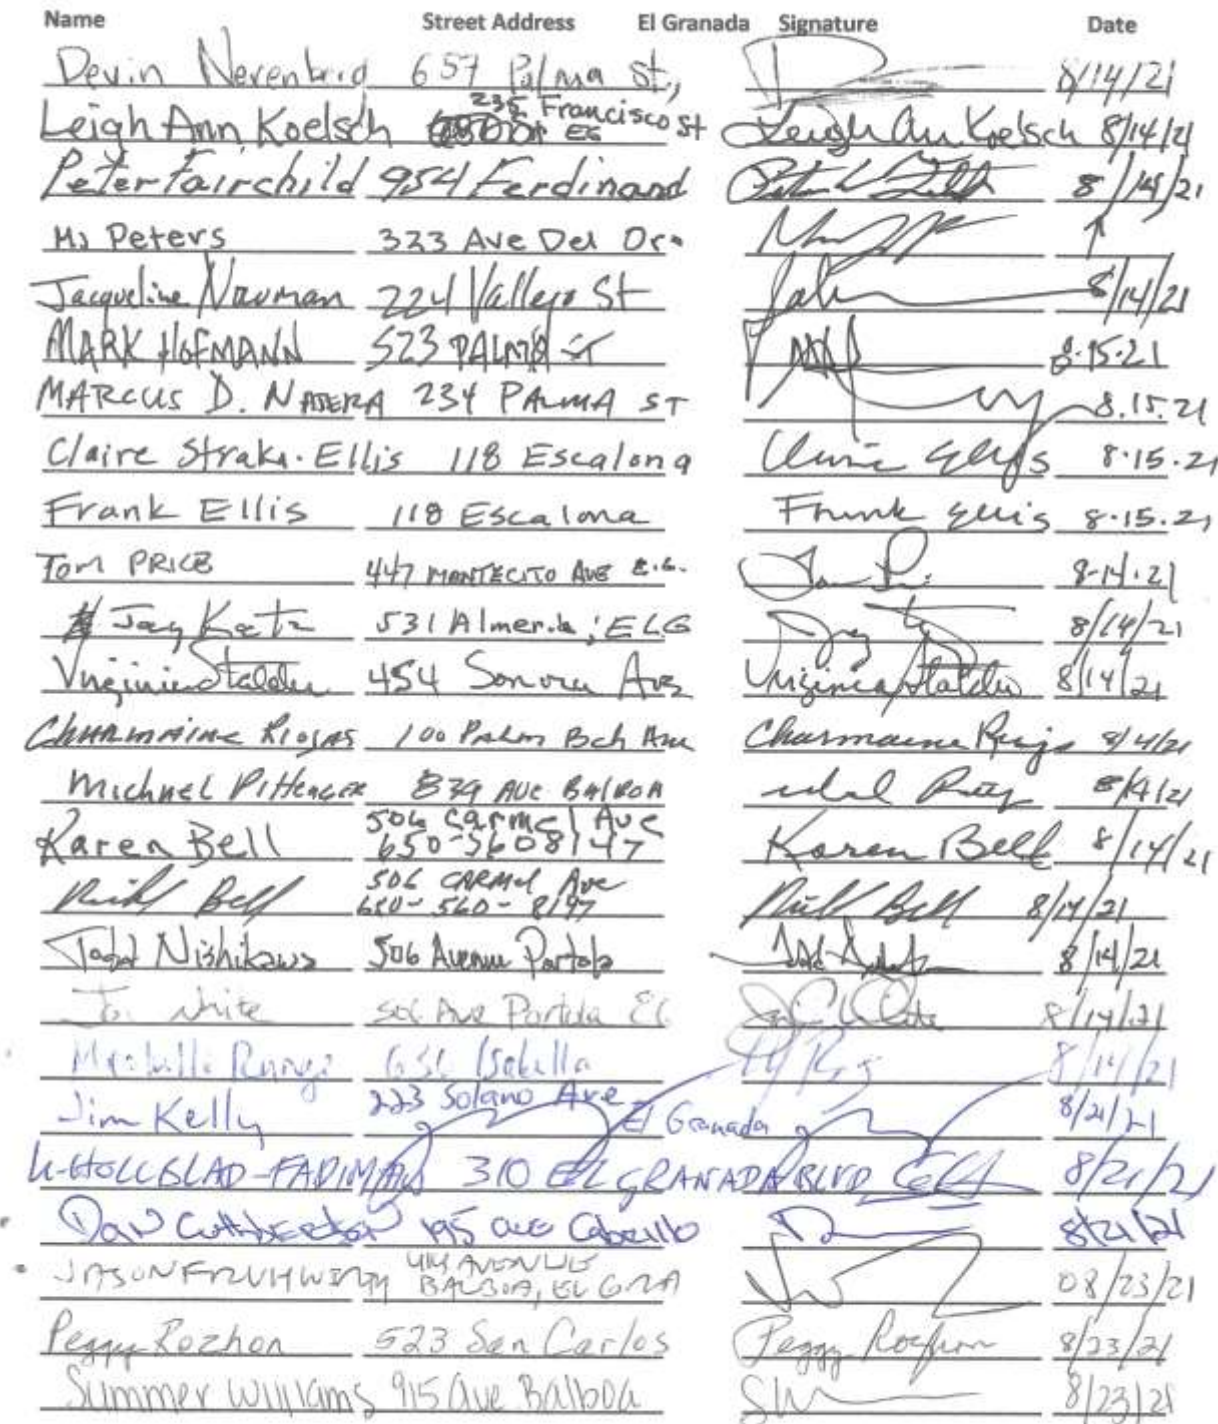 Name Street Address El Granada Signature Date
Devin 657 Palma St, 8/14/21
Leigh Ann Koelsch 235 Francisco St EG Leigh Ann Koelsch 8/14/21
Peter Fairchild 954 Ferdinand 8/14/21
Ms Peters 323 Ave Del Oro
Jacqueline Nauman 224 Vallejo St 8/14/21
MARK HOFMANN 523 PALMA ST 8.15.21
MARCUS D. NAJERA 234 PALMA ST 8.15.21
Claire Straka-Ellis 118 Escalona Ellis 8.15.21
Frank Ellis 118 Escalona Frank Ellis 8.15.21
Tom PRICE 447 MONTECITO AVE E.G. 8-14-21
Jay Katz 531 Almeria, ELG 8/14/21
Virginia Stalder 454 Sonora Ave Virginia Stalder 8/14/21
Charmaine Riojas 100 Palm Bch Ave Charmaine Riojas
Michael Pittenger 839 AVE BALBOA 8/14/21
506 Carmel Ave
Karen Bell 650-5608147 Karen Bell 8/14/21
506 CARMEL Ave
Bell 650-560-8197 Bell 8/14/21
Todd Nishikawa 506 Avenue Portola 8/14/21
White 506 Ave Portola EG White 8/14/21
Isabella 8/14/21
Jim Kelly 223 Solano Ave El Granada 8/21/21
310 EL GRANADA BLVD 8/21/21
Dan Cuthbertson 195 ave Cabrillo 8/21/21
JASON AVENUE BALBOA, EL GRA 08/23/21
Peggy Rozhon 523 San Carlos Peggy Rozhon 8/23/21
Summer Williams 915 ave Balboa SW 8/23/21